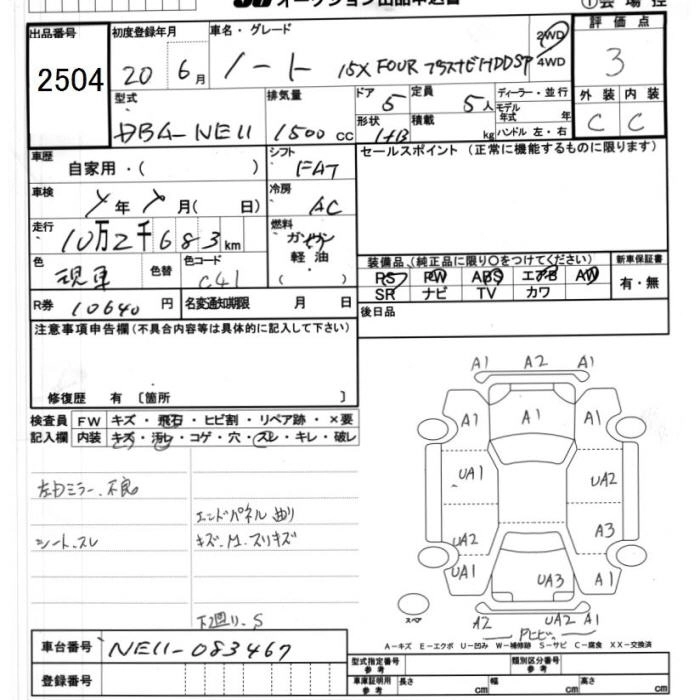 オークション出品申込書
①会場控
出品番号 初度登録年月 車名・グレード 評価点
2504 20 6月 ノート 15X FOUR プラスナビHDD SP 2WD 4WD 3
型式 排気量 ドア 定員 ディーラー・並行 外装 内装
DBA-NE11 1500cc 5 5人 モデル年式 年 C C
形状 積載
HB kg ハンドル 左・右
車歴 シフト セールスポイント(正常に機能するものに限ります)
自家用・( ) FAT
車検 冷房
年 月( 日) AC
走行 燃料
10万2千683km ガソリン
軽油
( ・ )
色 色替 色コード 装備品(純正品に限り○をつけてください) 新車保証書
現車 C41 PS PW ABS エアB AW 有・無
SR ナビ TV カワ
R券 10640円 名変通知期限 月 日 後日品
注意事項申告欄(不具合内容等は具体的に記入して下さい)
修復歴 有 〔箇所 〕
検査員 FW キズ・飛石・ヒビ割・リペア跡・×要
記入欄 内装 キズ・汚レ・コゲ・穴・スレ・キレ・破レ
左ドミラー、不良
エンドパネル曲り
シート、スレ キズ、M、スリキズ
下廻り、S
A1 A2 A1
A1 A1 A1
UA1 UA2
UA2 A3
UA1 UA3 A1
スペア A2 UA2 A1
Pヒビ
車台番号 NE11-083467
A-キズ E-エクボ U-凹み W-補修跡 S-サビ C-腐食 XX-交換済
登録番号
型式指定番号 参考 類別区分番号 参考
車庫証明用 参考 長さ cm 幅 cm 高さ cm